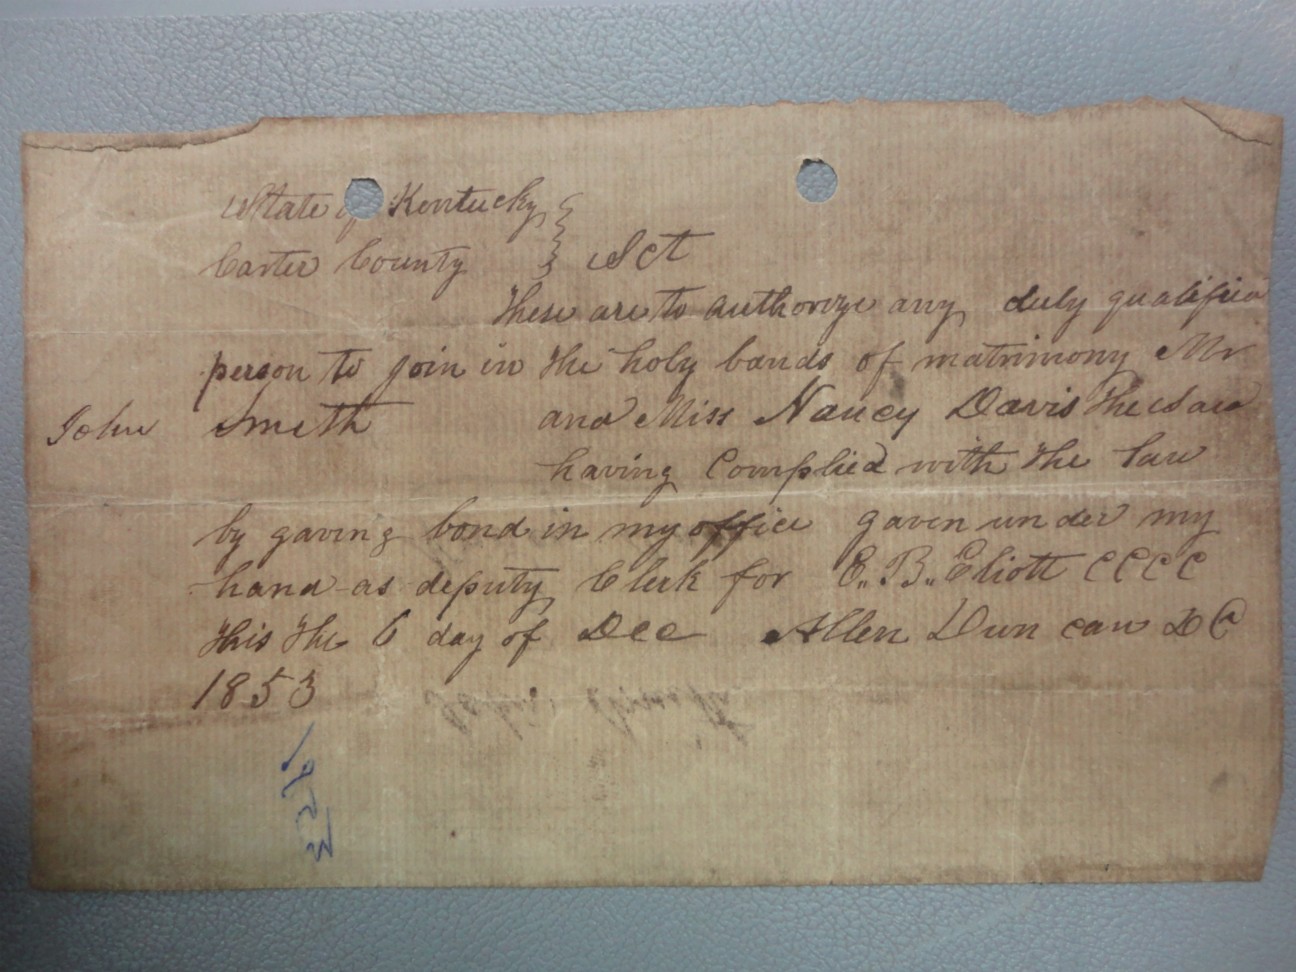 State of Kentucky }
Carter County } Sct
These are to authorize any duly qualified
person to join in the holy bands of matrimony Mr
John Smith and Miss Nancy Davis the said
having Complied with the law
by gaving bond in my office gaven under my
hand as deputy Clerk for E. B. Eliott CCCC
this the 6 day of Dec Allen Duncan DC
1853